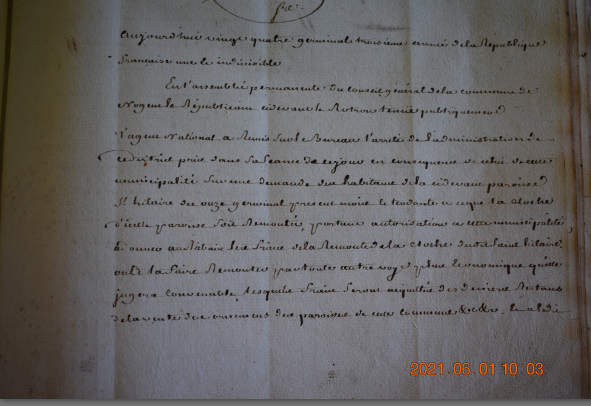 Aujourd'huy vingt quatre germinal troisieme année de la République
française une et indivisible
En l'assemblée permanente du Conseil général de la commune de
Nogent le Républicain cidevant le Rotrou tenue publiquement
L'agent National a Remis sur le Bureau l'arreté de l'administration de
ce district prise dans sa séance de ce jour en consequence de celui de cette
municipalité sur une demande des habitans de la cidevant paroisse
St hilaire du onze germinal present mois tendante a ce que la cloche
d'icelle paroisse soit Remontée, portant autorisation a cette municipalité
de la Remonte de la cloche dudit Saint hilaire,
ou de la faire Remonter par toute autre voye plus Economique qu'elle
jugera convenable, lesquels seront acquittés des deniers Restans
de la vente des ornemens des paroisses de cette commune &c &c,
2021.06.01 10:03